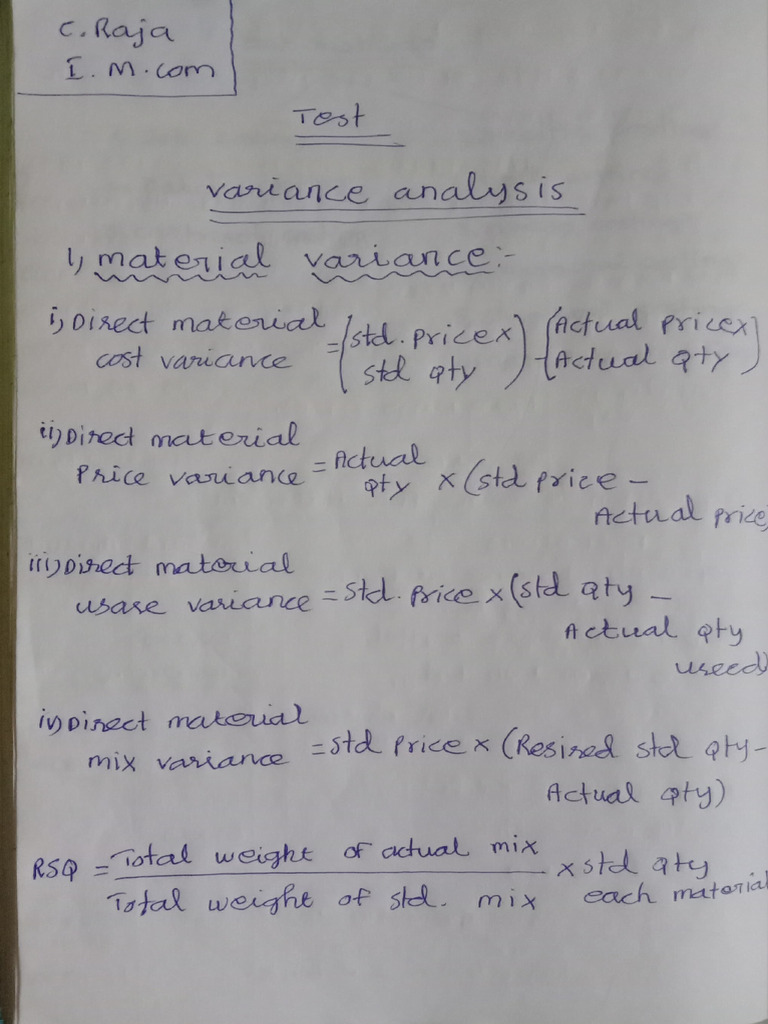 C. Raja
I. M. com
Test
variance analysis
1, material variance:-
i, Direct material cost variance = (std. price x std qty) - (Actual price x Actual qty)
ii) Direct material
Price variance = Actual qty x (std price -
Actual price)
iii) Direct material
usase variance = Std. Price x (std qty -
Actual qty
useed)
iv) Direct material
mix variance = std price x (Resired std qty -
Actual qty)
RSQ = Total weight of actual mix / Total weight of std. mix x std qty each material